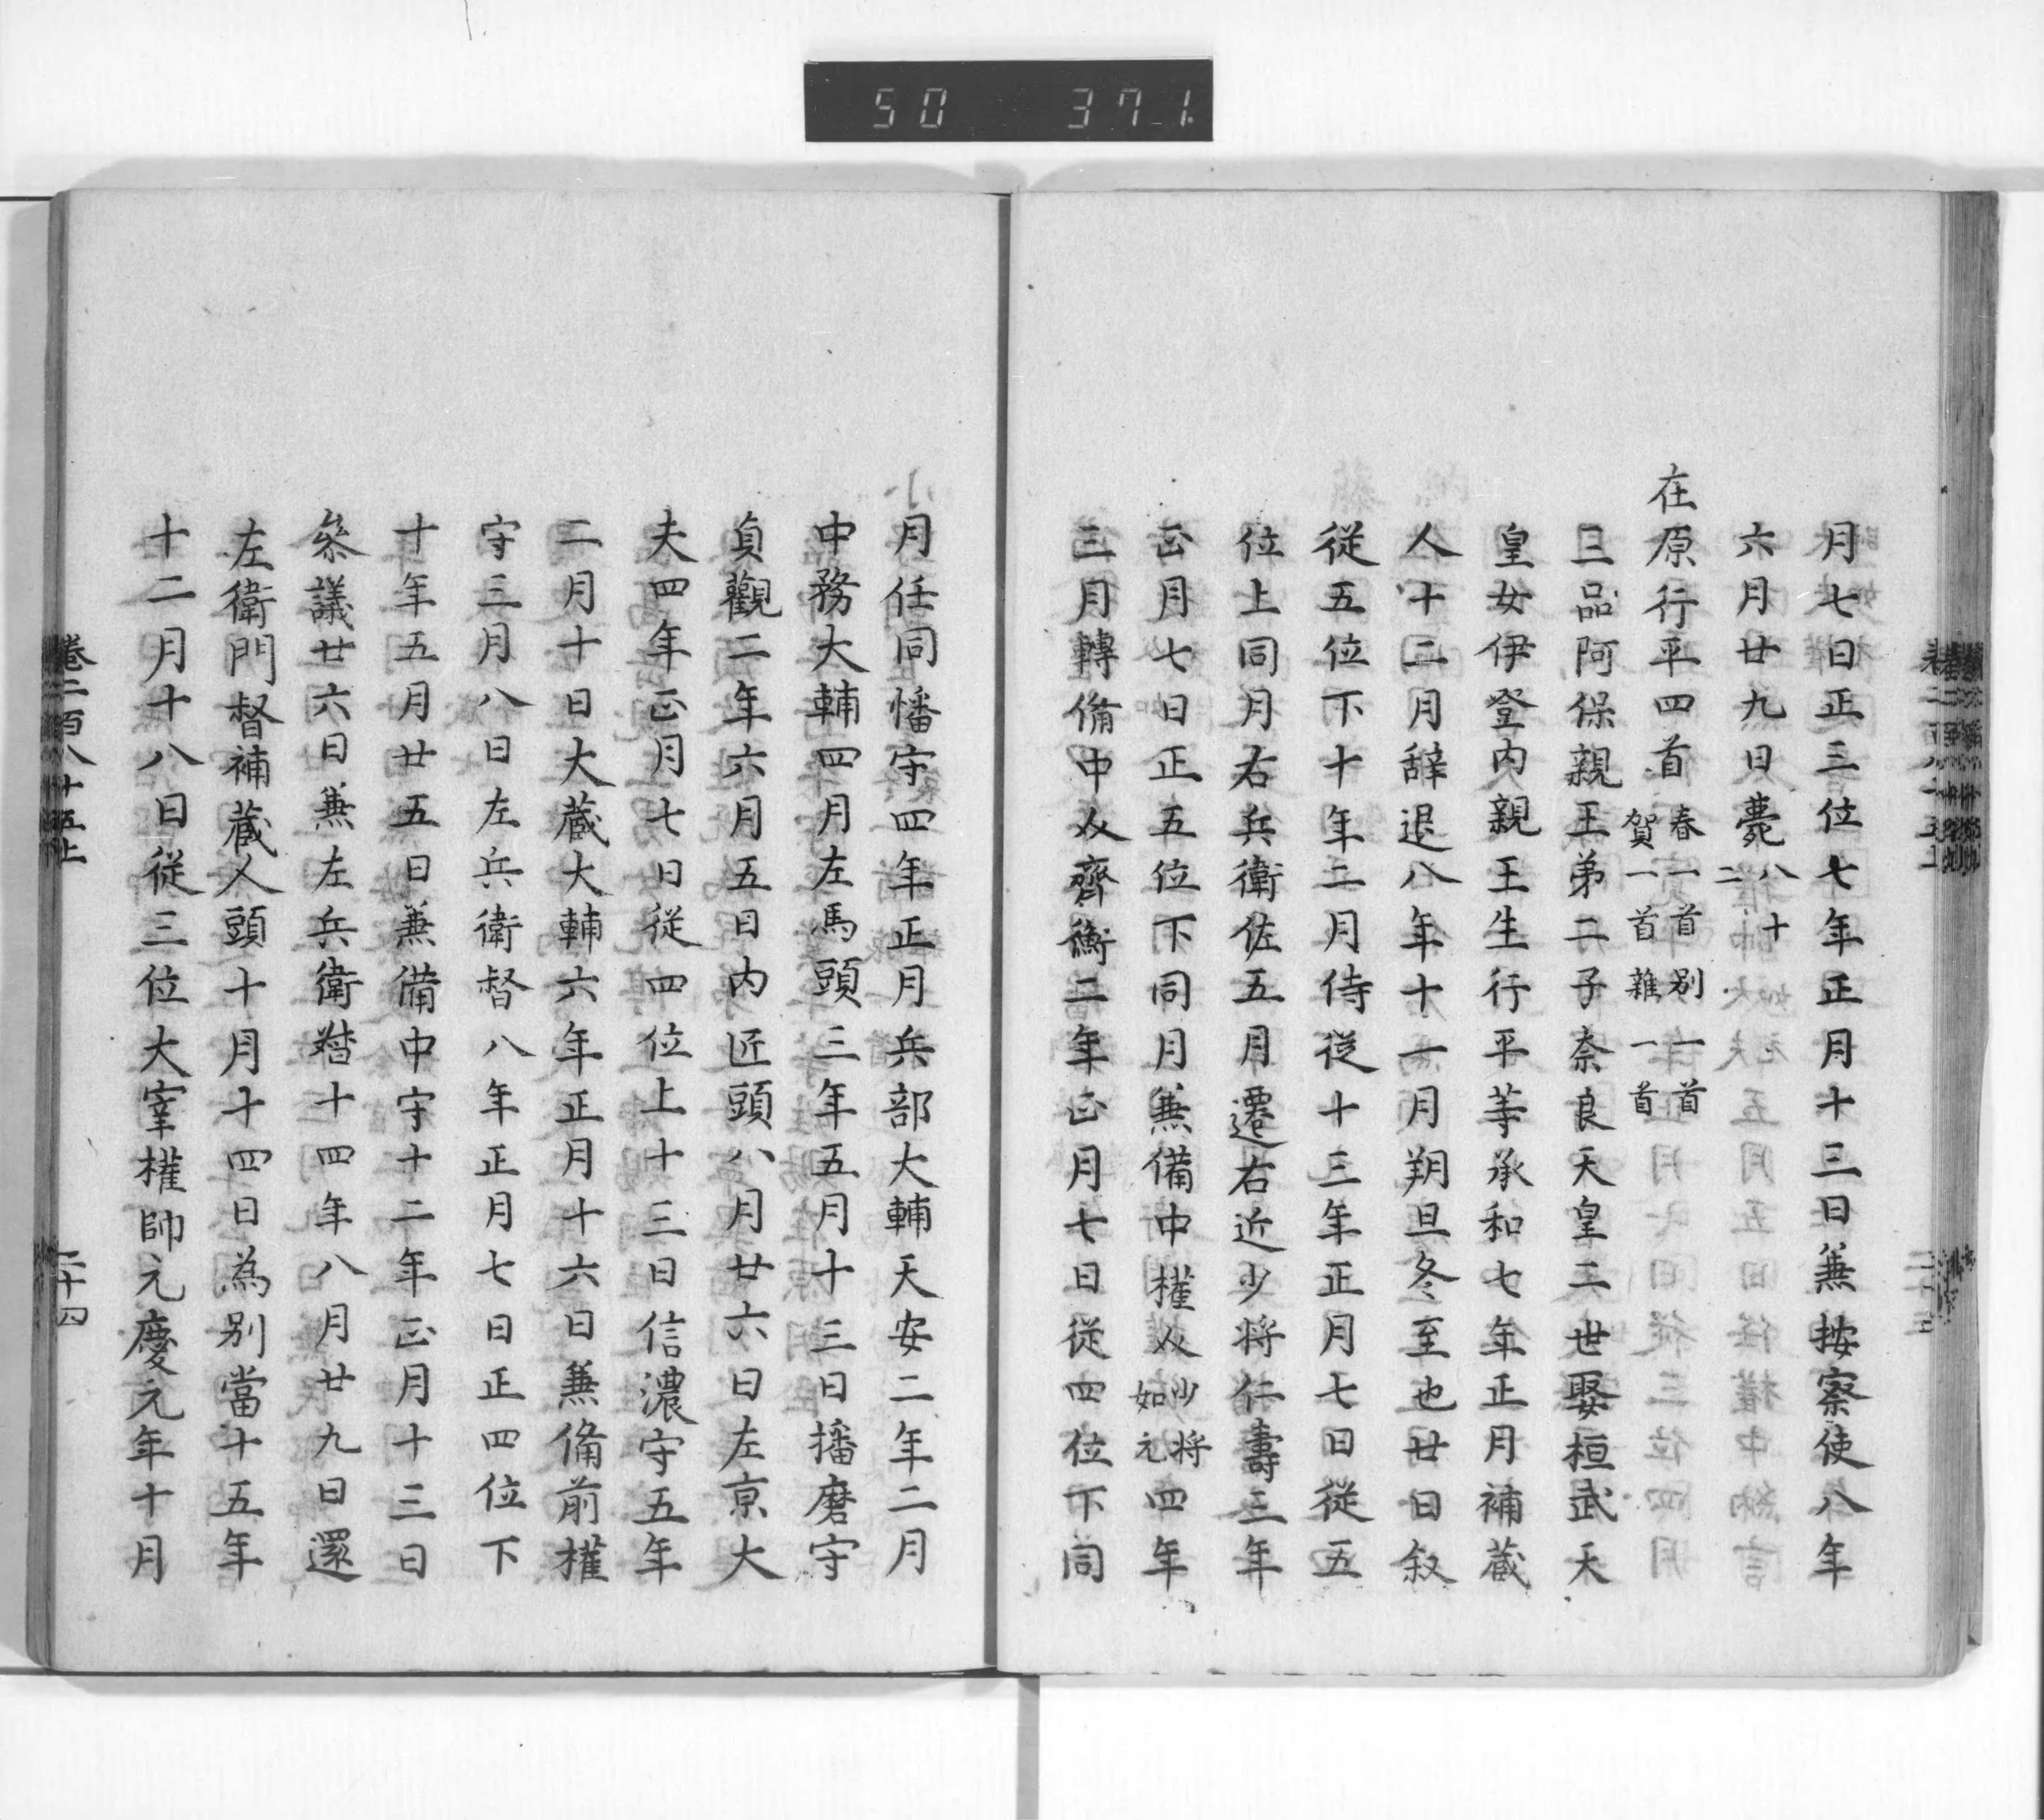 50 371.
月七日正三位七年正月十三日兼按察使八年
六月廿九日薨八十二
在原行平四首春一首別一首賀一首雜一首
三品阿保親王弟二子奈良天皇二世娶桓武天
皇女伊登内親王生行平等承和七年正月補蔵
人十二月辞退八年十一月朔旦冬至也廿日叙
従五位下十年二月侍従十三年正月七日従五
位上同月右兵衛佐五月遷右近少将仁壽三年
正月七日正五位下同月兼備中權介少将如元四年
三月轉備中介齊衡二年正月七日従四位下同
月任同幡守四年正月兵部大輔天安二年二月
中務大輔四月左馬頭三年五月十三日播磨守
貞觀二年六月五日内匠頭八月廿六日左京大
夫四年正月七日従四位上十三日信濃守五年
二月十日大蔵大輔六年正月十六日兼備前權
守三月八日左兵衛督八年正月七日正四位下
十年五月廿五日兼備中守十二年正月十三日
叅議廿六日兼左兵衛督十四年八月廿九日還
左衛門督補蔵人頭十月十四日為別當十五年
十二月十八日従三位大宰權帥元慶元年十月
巻二百八十五上
二十四